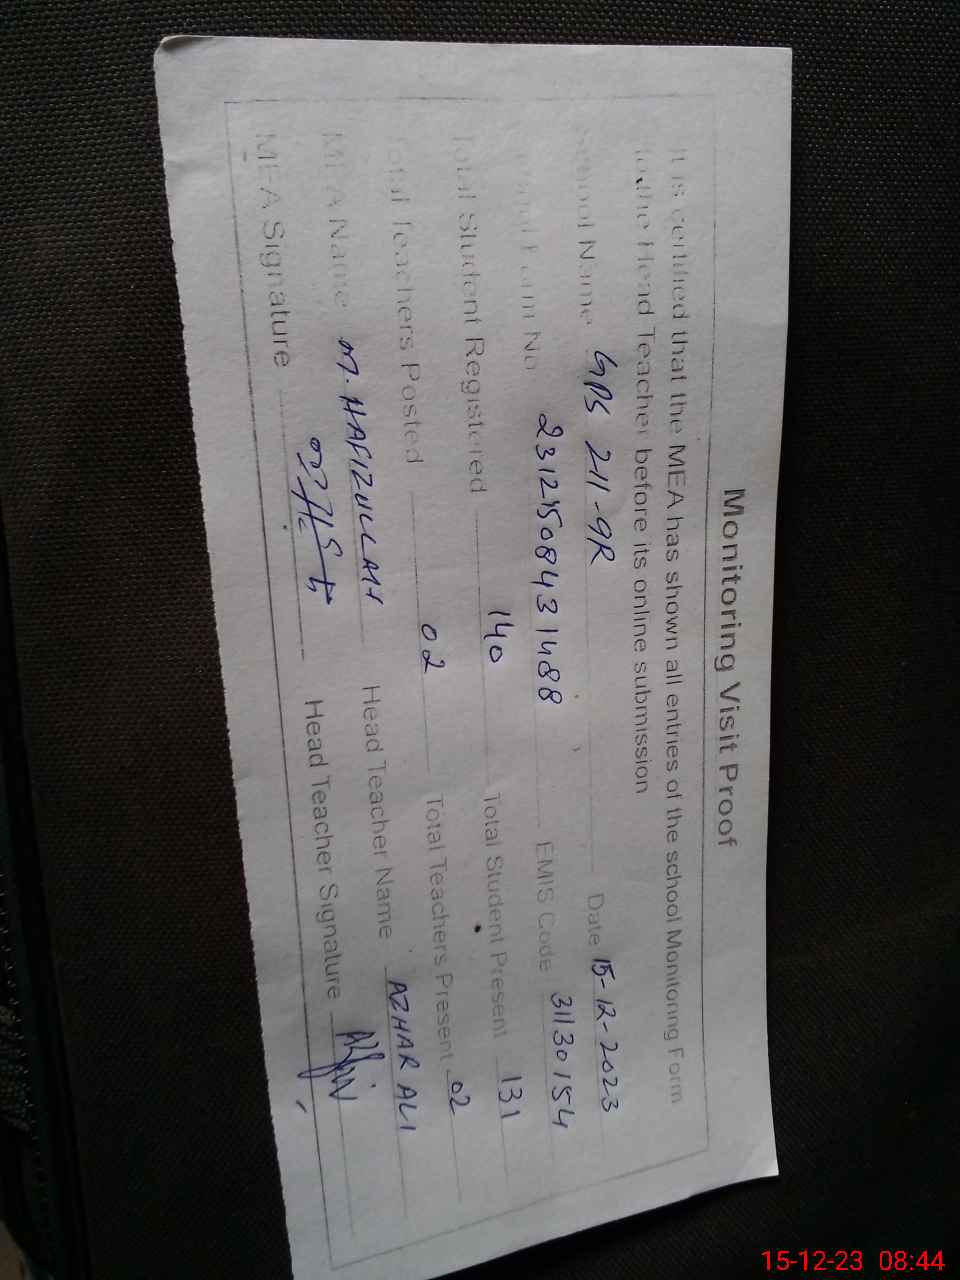 Monitoring Visit Proof
It is certified that the MEA has shown all entries of the school Monitoring Form
to the Head Teacher before its online submission
School Name GPS 211-9R Date 15-12-2023
Form No 23121508431488 EMIS Code 31130154
Total Student Registered 140 Total Student Present 131
Total Teachers Posted 02 Total Teachers Present 02
MEA Name M. HAFIZULLAH Head Teacher Name AZHAR ALI
MEA Signature Head Teacher Signature
15-12-23 08:44